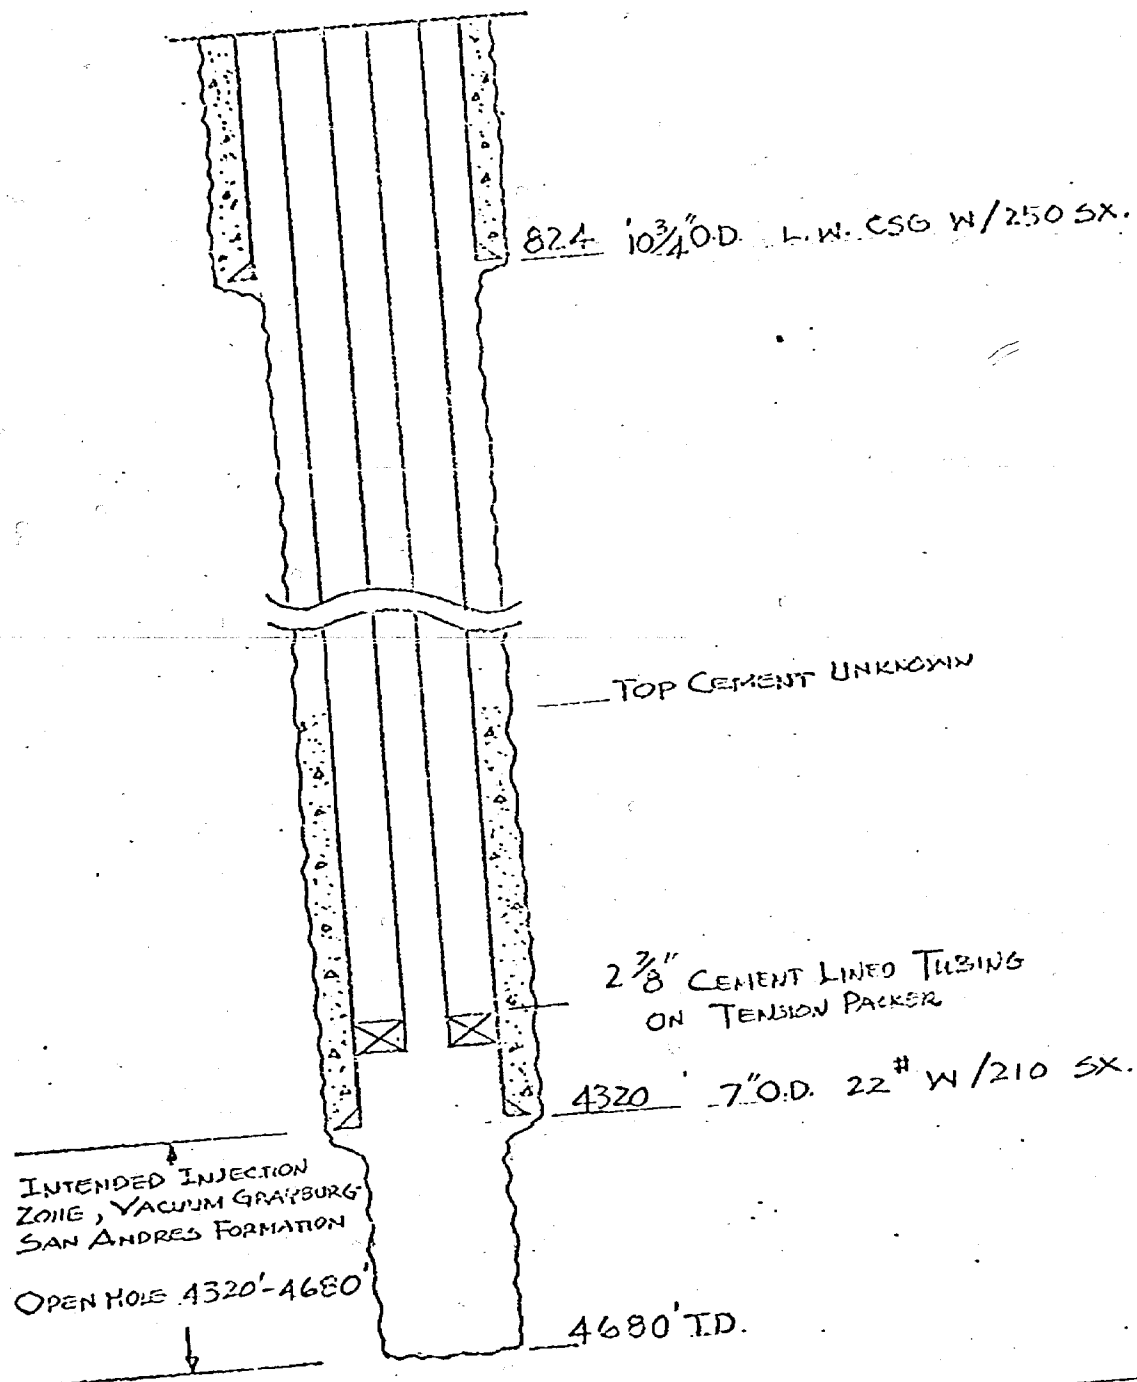 824 ' 10¾" O.D. L.W. CSG W/250 SX.
TOP CEMENT UNKNOWN
2⅞" CEMENT LINED TUBING
ON TENSION PACKER
4320 ' 7" O.D. 22# W/210 SX.
INTENDED INJECTION
ZONE, VACUUM GRAYBURG-
SAN ANDRES FORMATION
OPEN HOLE 4320'-4680'
4680' T.D.